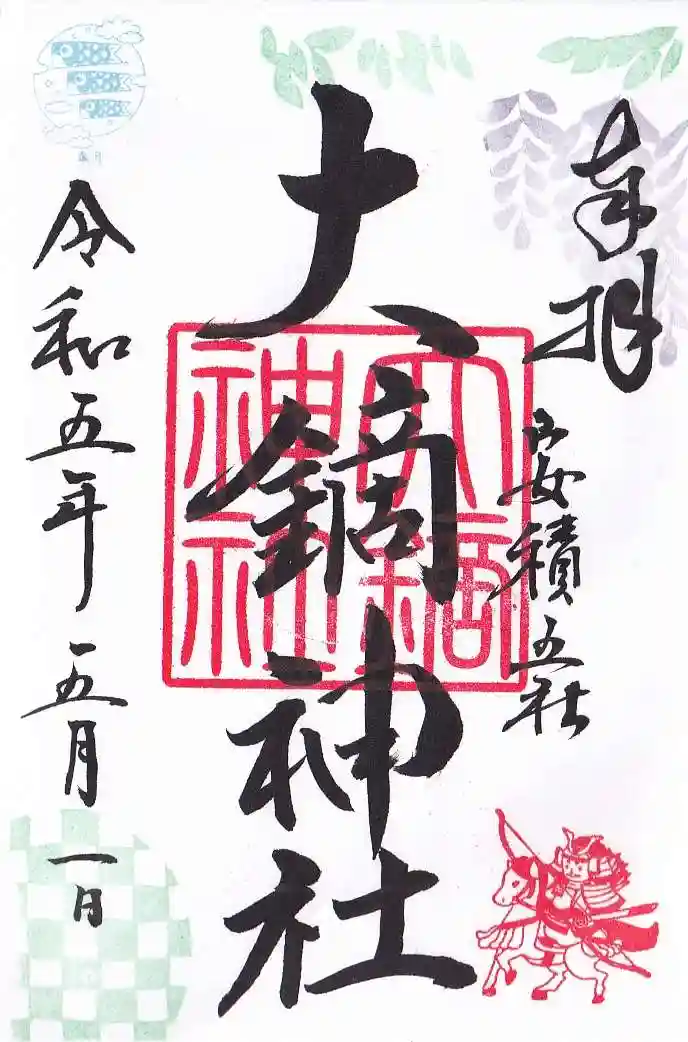 奉拝
安積五社
大鏑神社
大鏑神社
令和五年 五月 一日
皐月